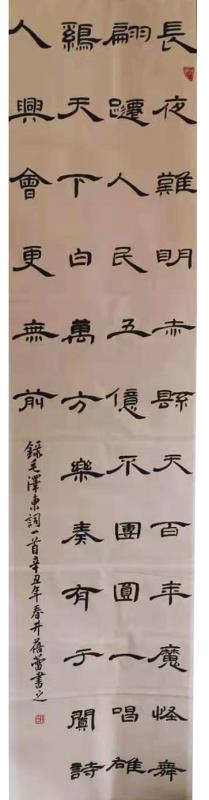 長夜難明赤縣天百年魔怪舞
翩躚人民五億不團圓一唱雄
鷄天下白萬方樂奏有于闐詩
人興會更無前
錄毛澤東詞一首辛丑年春井蓓蕾書之